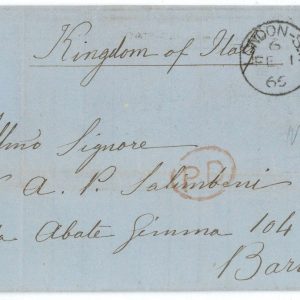 Kingdom of Ita
LONDON-S
6
FE 1
65
Illmo Signore
A. P. Salimbeni
Abate Gimma 104
Bar
PD